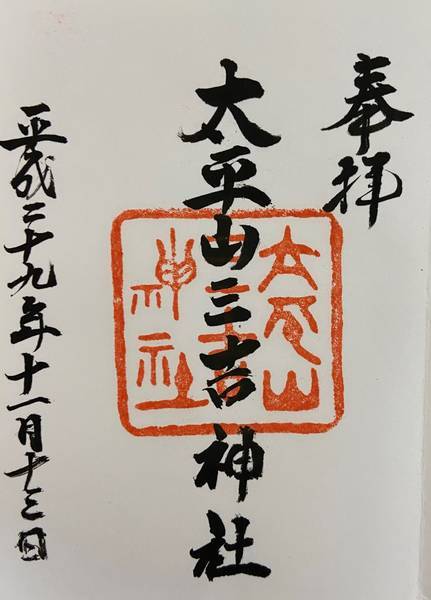 奉拝
太平山三吉神社
平成二十九年十一月十三日
太平山
神社